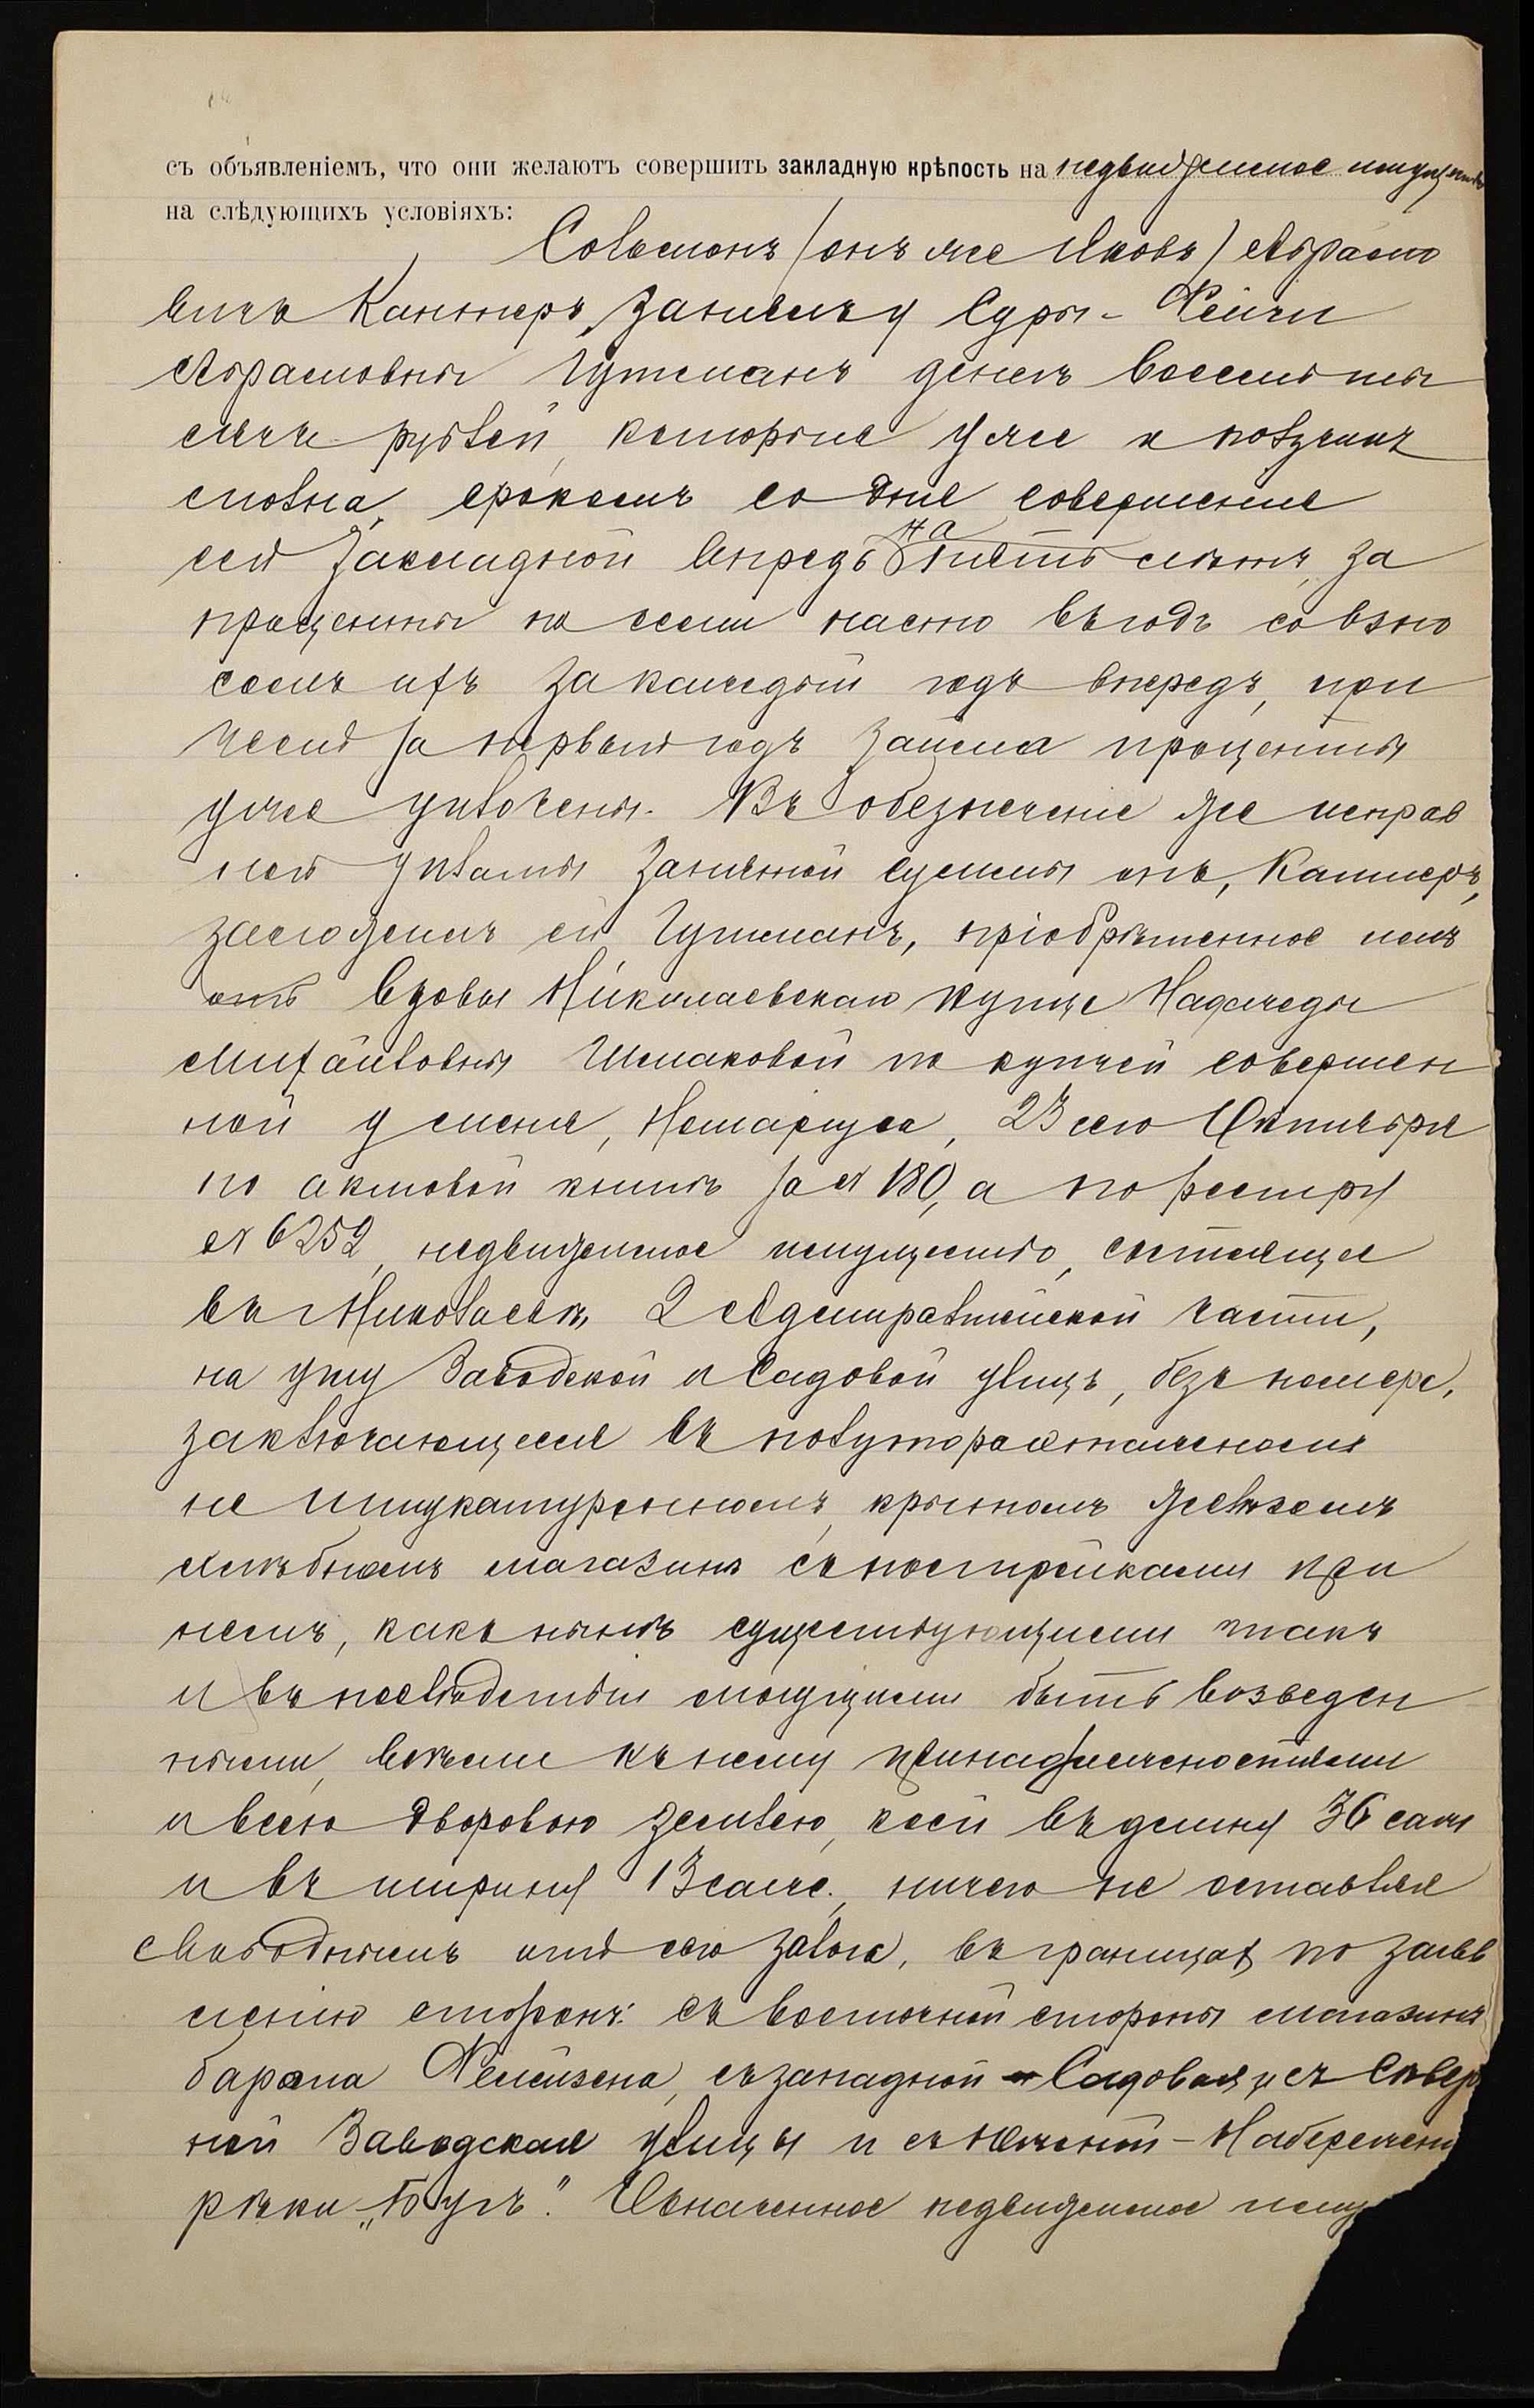 съ объявленіемъ, что они желаютъ совершить закладную крѣпость на недвижимое имущество
на слѣдующихъ условіяхъ:
Соломонъ (онъ же Яковъ) Абрамо
вичъ Каннеръ, занялъ у Суры-Фейги
Абрамовны Гутманъ денегъ восемь ты
сячъ рублей, которые уже и получилъ
сполна, срокомъ со дня совершенія
сей закладной впредь на пять лѣтъ, за
проценты по семи на сто въ годъ со взно
сомъ ихъ за каждый годъ впередъ, при
чемъ за первый годъ займа проценты
уже уплочены. Въ обезпеченіе же исправ
ной уплаты занятой суммы онъ, Каннеръ,
заложилъ ей Гутманъ, пріобрѣтенное имъ
отъ вдовы Николаевскаго купца Надежды
Михайловны Шмаковой по купчей совершен
ной у меня, Нотаріуса, 23 сего Октября
по актовой книгѣ за № 180, а по реестру
№ 6252, недвижимое имущество, состоящее
въ г. Николаевѣ, 2 Адмиралтейской части,
на углу Заводской и Садовой улицъ, безъ номера,
заключающееся въ полутораэтажномъ
не штукатуренномъ, крытомъ желѣзомъ
хлѣбномъ магазинѣ съ постройками при
немъ, какъ нынѣ существующими такъ
и въ послѣдствіи могущими быть возведен
ными, всѣми къ нему принадлежностями
и всею дворовою землею, коей въ длину 36 саж
и въ ширину 13 саж., ничего не оставляя
свободнымъ отъ сего залога, въ границахъ по заяв
ленію сторонъ: съ восточной стороны магазинъ
барона Фельйзена, съ западной Садовая, съ Север
ной Заводская улицы и съ Южной - Набережн
рѣки „Бугъ“. Означенное недвижимое иму